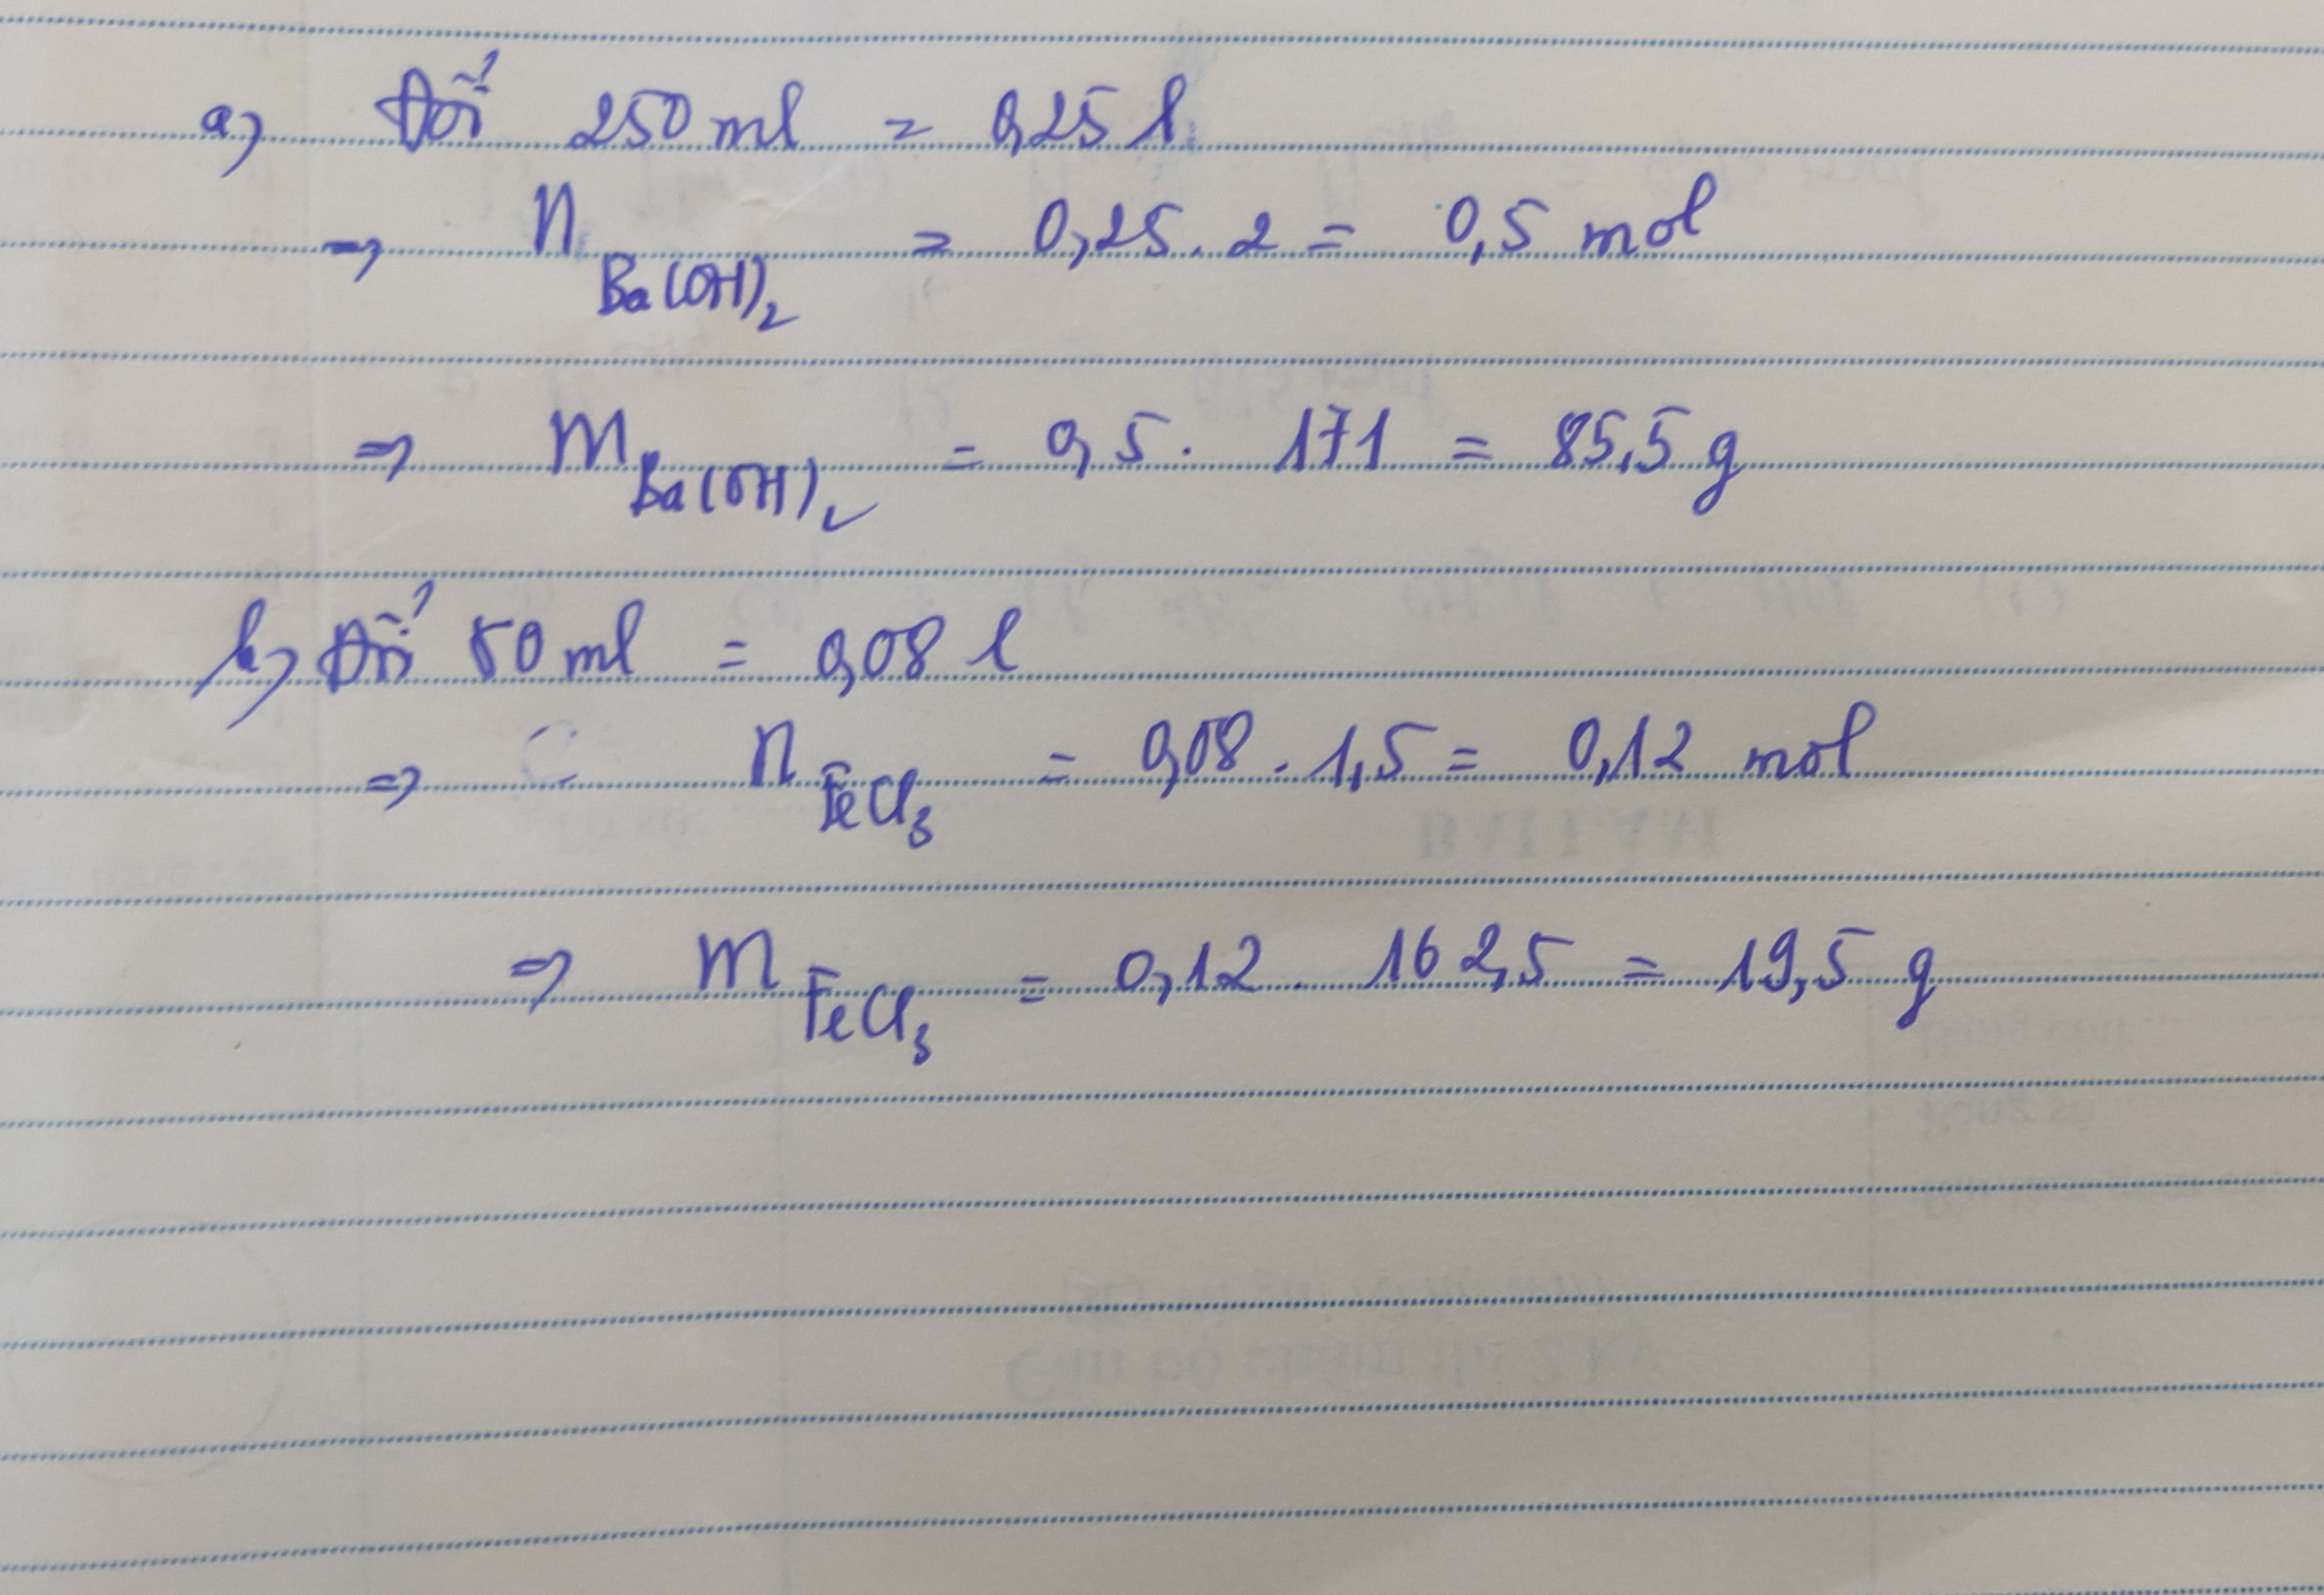 a) Đổi 250 ml = 0,25 l
=> n Ba(OH)₂ = 0,25 . 2 = 0,5 mol
=> m Ba(OH)₂ = 0,5 . 171 = 85,5 g
b) Đổi 80 ml = 0,08 l
=> n FeCl₃ = 0,08 . 1,5 = 0,12 mol
=> m FeCl₃ = 0,12 . 162,5 = 19,5 g